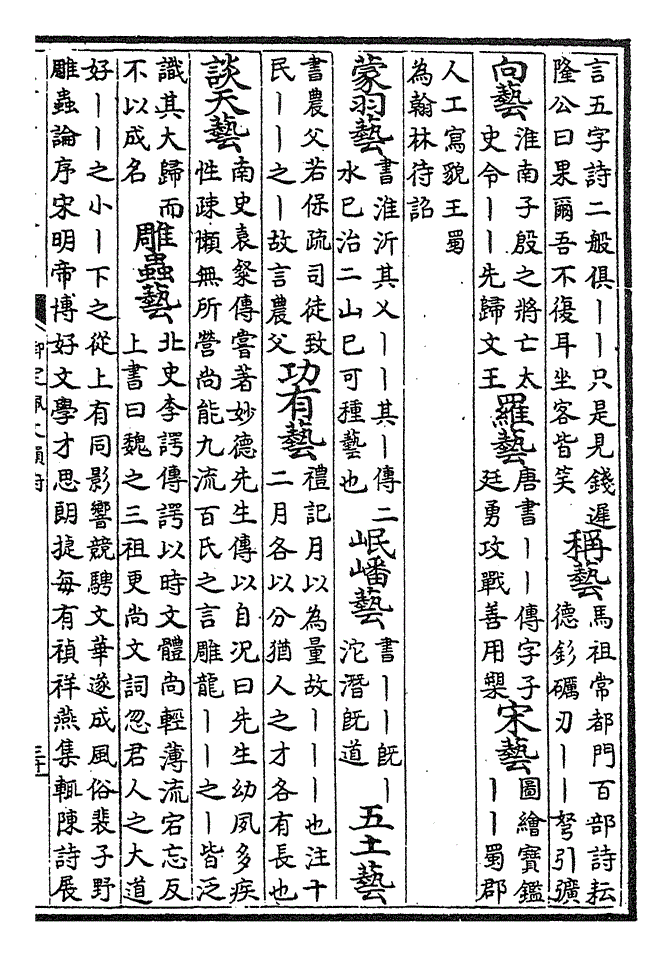 言五字詩二般俱丨丨只是見錢遲
隆公曰果爾吾不復耳坐客皆笑
稱藝
馬祖常都門百部詩耘
德釤礪刃丨丨弩引彍
向藝
淮南子殷之將亡太
史令丨丨先歸文王
羅藝
唐書丨丨傳字子
廷勇攻戰善用槊
宋藝
圖繪寶鑑
丨丨蜀郡
人工寫貌王蜀
為翰林待詔
蒙羽藝
書淮沂其乂丨丨其丨傳二
水已治二山已可種藝也
岷嶓藝
書丨丨旣丨
沱潛旣道
五土藝
書農父若保疏司徒致
民丨丨之丨故言農父
功有藝
禮記月以為量故丨丨丨也注十
二月各以分猶人之才各有長也
談天藝
南史袁粲傳嘗著妙德先生傳以自況曰先生幼夙多疾
性疎懶無所營尚能九流百氏之言雕龍丨丨之丨皆泛
識其大歸而
不以成名
雕蟲藝
北史李諤傳諤以時文體尚輕薄流宕忘反
上書曰魏之三祖更尚文詞忽君人之大道
好丨丨之小丨下之從上有同影響競騁文華遂成風俗裴子野
雕蟲論序宋明帝博好文學才思朗捷每有禎祥燕集輒陳詩展